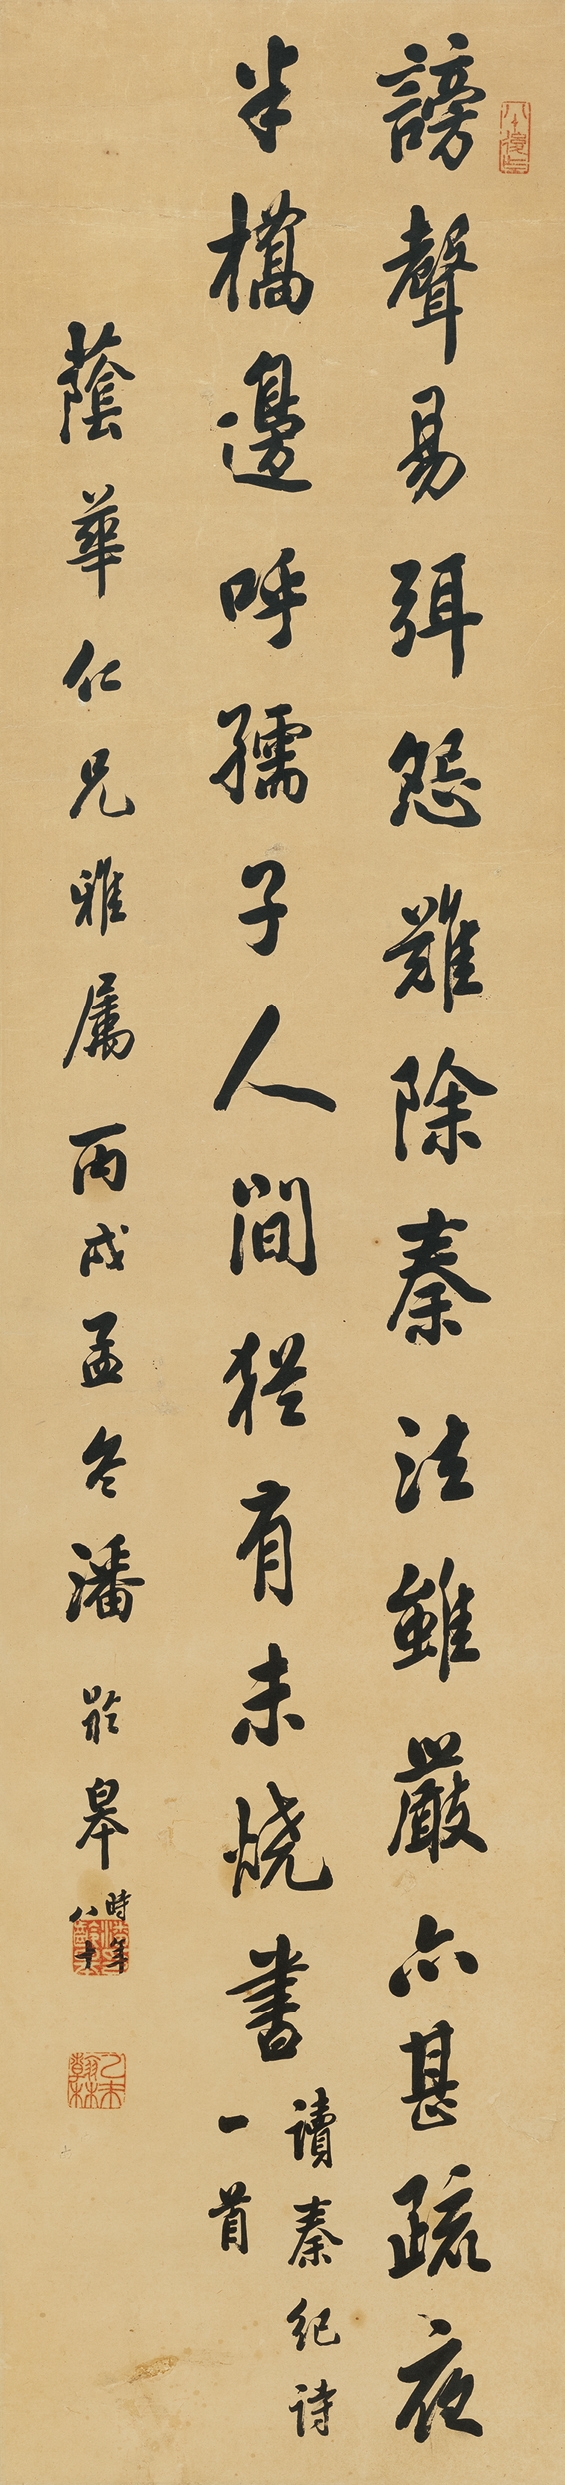 謗聲易弭怨難除秦法雖嚴亦甚疏夜
半橋邊呼孺子人間猶有未燒書
讀秦紀詩
一首
蔭華仁兄雅屬丙戌孟冬潘齡皋
時年
八十
乙未
翰林